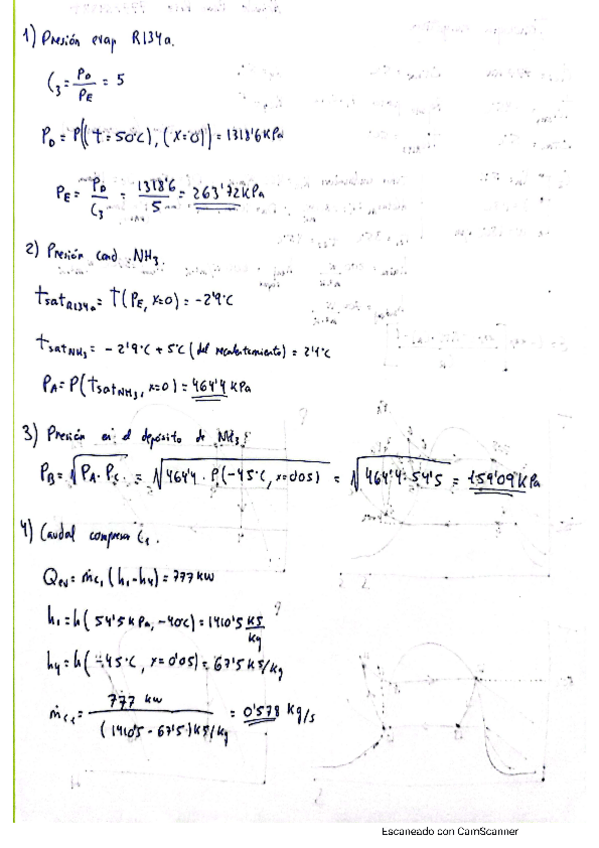 1) Presión evap R134a.
C₃ = P_D / P_E = 5
P_D = P((t=50°C),(x=0)) = 1318'6 KPa
P_E = P_D / C₃ = 1318'6 / 5 = 263'72 KPa
2) Presión cond. NH₃.
t_sat R134a = T(P_E, x=0) = -2'9°C
t_sat NH₃ = -2'9°C + 5°C (del recalentamiento) = 2'1°C
P_A = P(t_sat NH₃, x=0) = 464'4 KPa
3) Presión en el depósito de NH₃
P_B = √(P_A · P_C) = √(464'4 · P(-45°C, x=0'05)) = √(464'4 · 54'5) = 159'09 KPa
4) Caudal compresor C₁.
Q_ev = ṁ_C₁ (h₁-h₄) = 777 KW
h₁ = h(54'5 KPa, -40°C) = 1410'5 KJ/Kg
h₄ = h(-45°C, x=0'05) = 67'5 KJ/Kg
ṁ_C₁ = 777 KW / (1410'5 - 67'5) KJ/Kg = 0'578 Kg/s
Escaneado con CamScanner